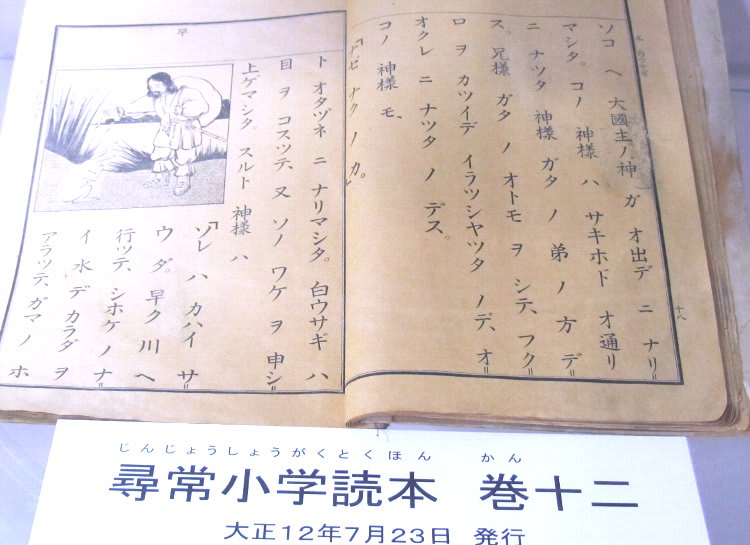 十八
ソコ ヘ 大國主ノ神 ガ オ出デ ニ ナリ=
マシタ。コノ 神様 ハ サキホド オ通リ
ニ ナツタ 神様 ガタ ノ 弟 ノ 方 デ=
ス。兄様 ガタ ノ オトモ ヲ シテ、フク=
ロ ヲ カツイデ イラツシヤツタ ノデ、オ=
オクレ ニ ナツタ ノ デス。
コノ 神様 モ、
「ナゼ ナク ノ カ。」
ト オタヅネ ニ ナリマシタ。白ウサギ ハ
目 ヲ コスツテ、又 ソノ ワケ ヲ 申シ=
上ゲマシタ。スルト 神様 ハ
早
「ソレ ハ カハイ サ=
ウ ダ。早ク 川 ヘ
行ツテ、シホケ ノ ナ=
イ 水 デ カラダ ヲ
アラツテ、ガマ ノ ホ
じんじょうしょうがくとくほん かん
尋常小学読本 巻十二
大正12年7月23日 発行